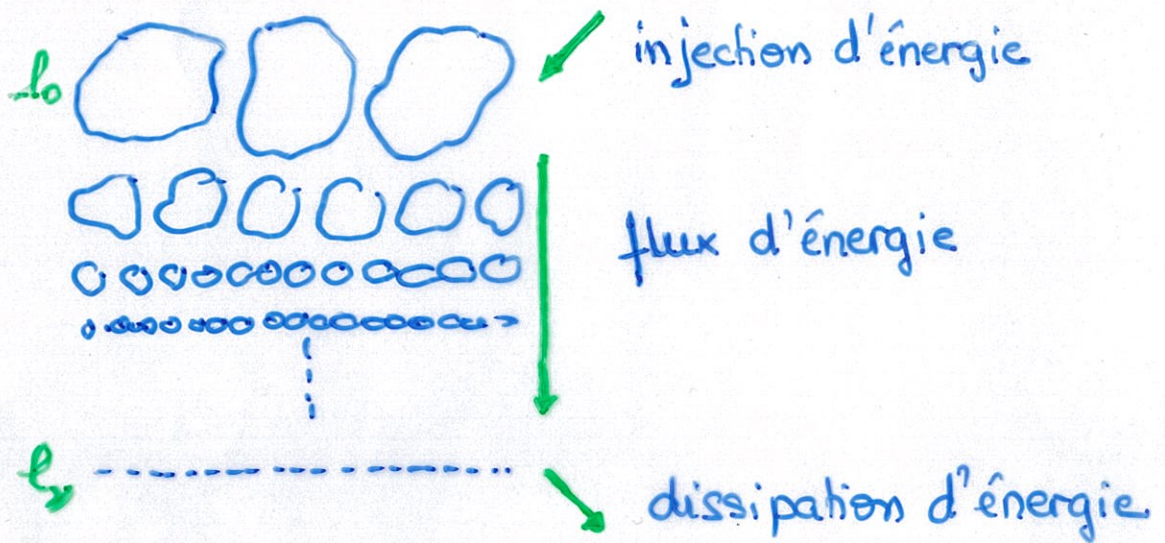 l₀
injection d'énergie
flux d'énergie
lᵥ
dissipation d'énergie.